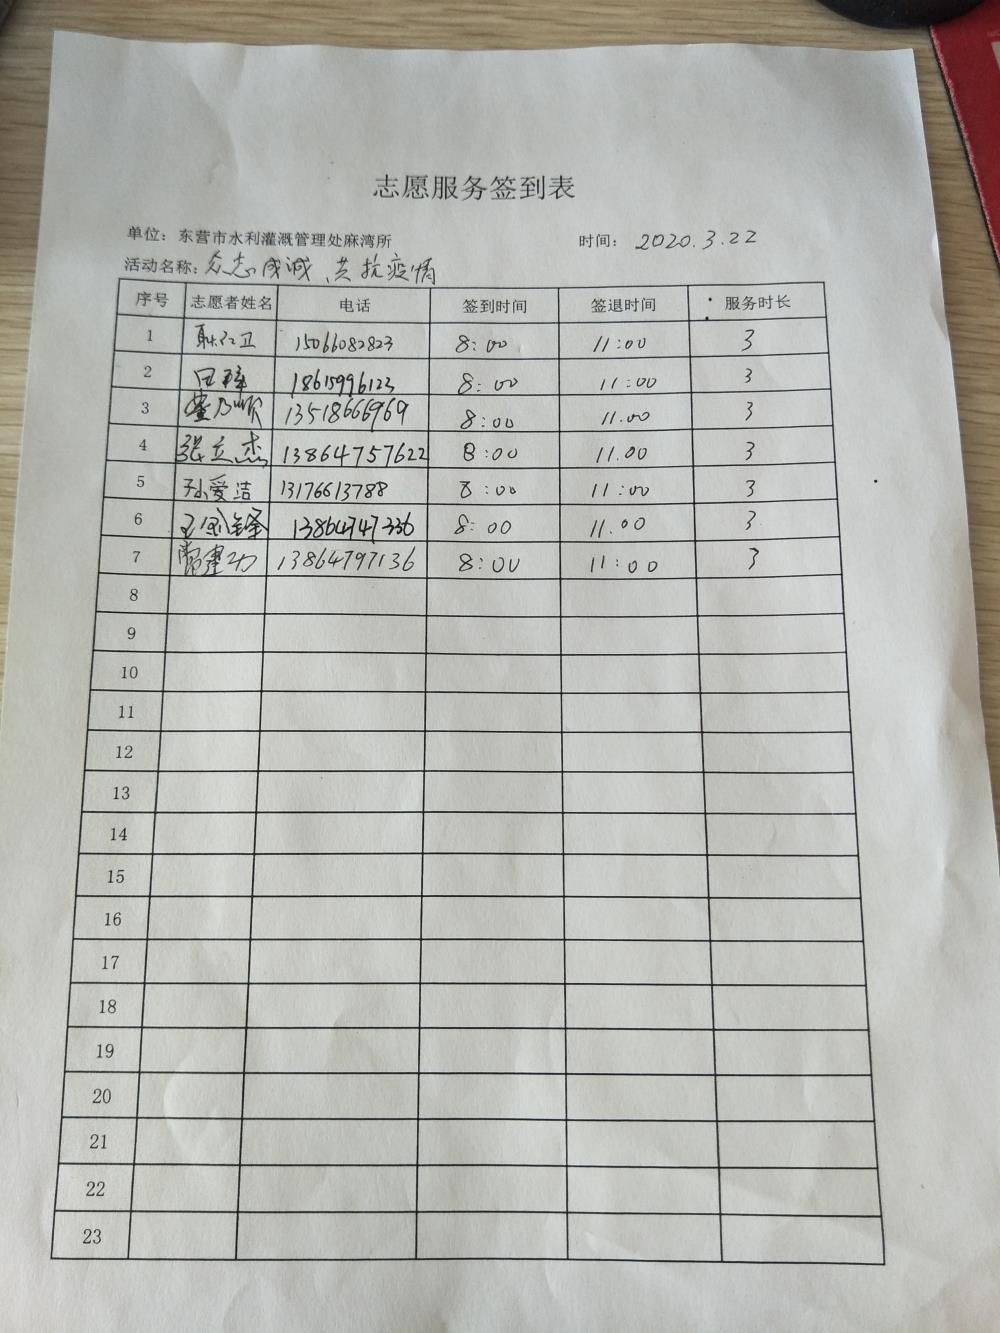 志愿服务签到表
单位：东营市水利灌溉管理处麻湾所 时间：2020.3.22
活动名称：众志成诚、共抗疫情
序号 志愿者姓名 电话 签到时间 签退时间 服务时长
1 耿红卫 15066082823 8:00 11:00 3
2 18615996123 8:00 11:00 3
3 13518666969 8:00 11.00 3
4 张立杰 13864757622 8:00 11.00 3
5 孙爱洁 13176613788 8:00 11:00 3
6 13864747336 8:00 11.00 3
7 常建功 13864797136 8:00 11:00 3
8
9
10
11
12
13
14
15
16
17
18
19
20
21
22
23